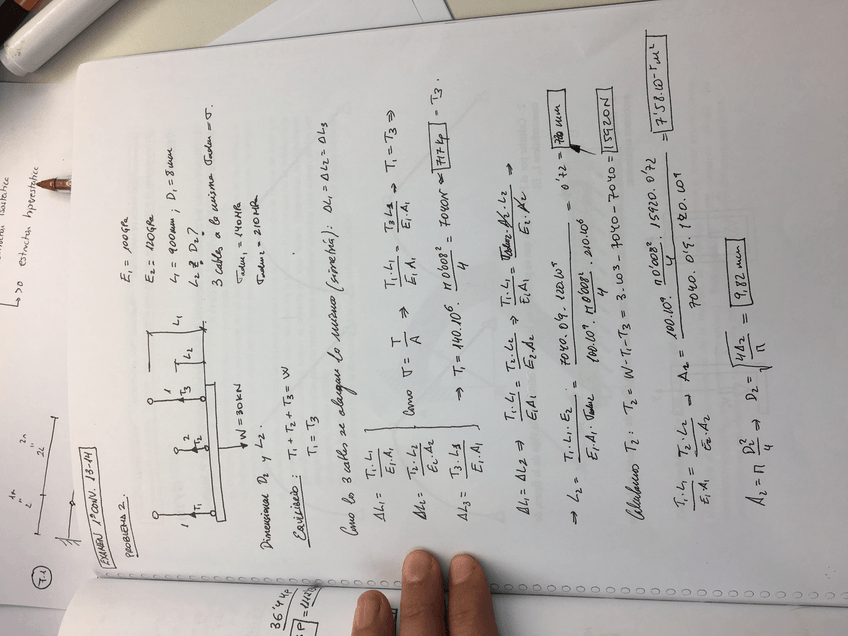 → No estructura hiperestática
T.1
EXAMEN 1ª CONV. 13-14
PROBLEMA 2.
E₁ = 100 GPa
E₂ = 120 GPa
L₁ = 900 mm ; D₁ = 8 mm
L₂ ? D₂ ?
3 cables a la misma σadm = σ.
σadm₁ = 140 MPa
σadm₂ = 210 MPa
1 T₁ 2 T₂ 1 T₃ L₂ L₁
W = 30 kN
Dimensionar D₂ y L₂.
Equilibrio: T₁ + T₂ + T₃ = W
T₁ = T₃
Como los 3 cables se alargan lo mismo (simetría): ΔL₁ = ΔL₂ = ΔL₃
ΔL₁ = T₁·L₁ / E₁·A₁
ΔL₂ = T₂·L₂ / E₂·A₂
ΔL₃ = T₃·L₁ / E₁·A₁
T₁·L₁ / E₁A₁ = T₃L₁ / E₁A₁ ⇒ T₁ = T₃ ⇒
Como σ = T / A ⇒
⇒ T₁ = 140·10⁶ · π0'008² / 4 = 7040N ≈ 717 kp = T₃.
ΔL₁ = ΔL₂ ⇒ T₁·L₁ / E₁A₁ = T₂·L₂ / E₂·A₂ ⇒ T₁·L₁ / E₁A₁ = σadm₂·A₂·L₂ / E₂·A₂ ⇒
⇒ L₂ = T₁·L₁·E₂ / E₁·A₁·σadm₂ = 7040·0'9·120·10⁹ / 100·10⁹ · π0'008² / 4 · 210·10⁶ = 0'72 = 720 mm
Calculamos T₂: T₂ = W - T₁ - T₃ = 3·10³ - 7040 - 7040 = 15920N
T₁·L₁ / E₁A₁ = T₂·L₂ / E₂·A₂ ⇒ A₂ = 100·10⁹ · π0'008² / 4 · 15920·0'72 / 7040·0'9·120·10⁹ = 7'58·10⁻⁵ m²
A₂ = π D₂² / 4 ⇒ D₂ = √4A₂ / π = 9,82 mm